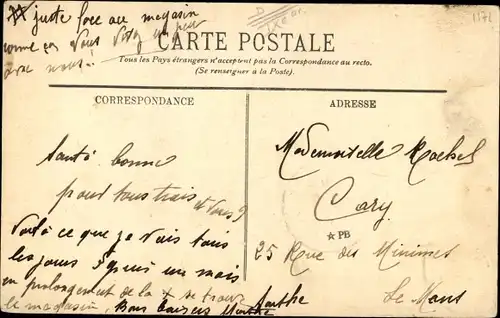 juste face au magasin
comme ça vous voyez un peu
avec nous!..
D
1171
CARTE POSTALE
Tous les Pays étrangers n'acceptent pas la Correspondance au recto.
(Se renseigner à la Poste).
CORRESPONDANCE
ADRESSE
Santé bonne
pour tous trois et vous?
Voilà ce que je vois tous
les jours depuis un mois
en prolongement de la + se trouve
le magasin, Bons baisers Marthe
Mademoiselle Rachel
Cary
★PB
25 Rue des Minimes
Le Mans
Sarthe